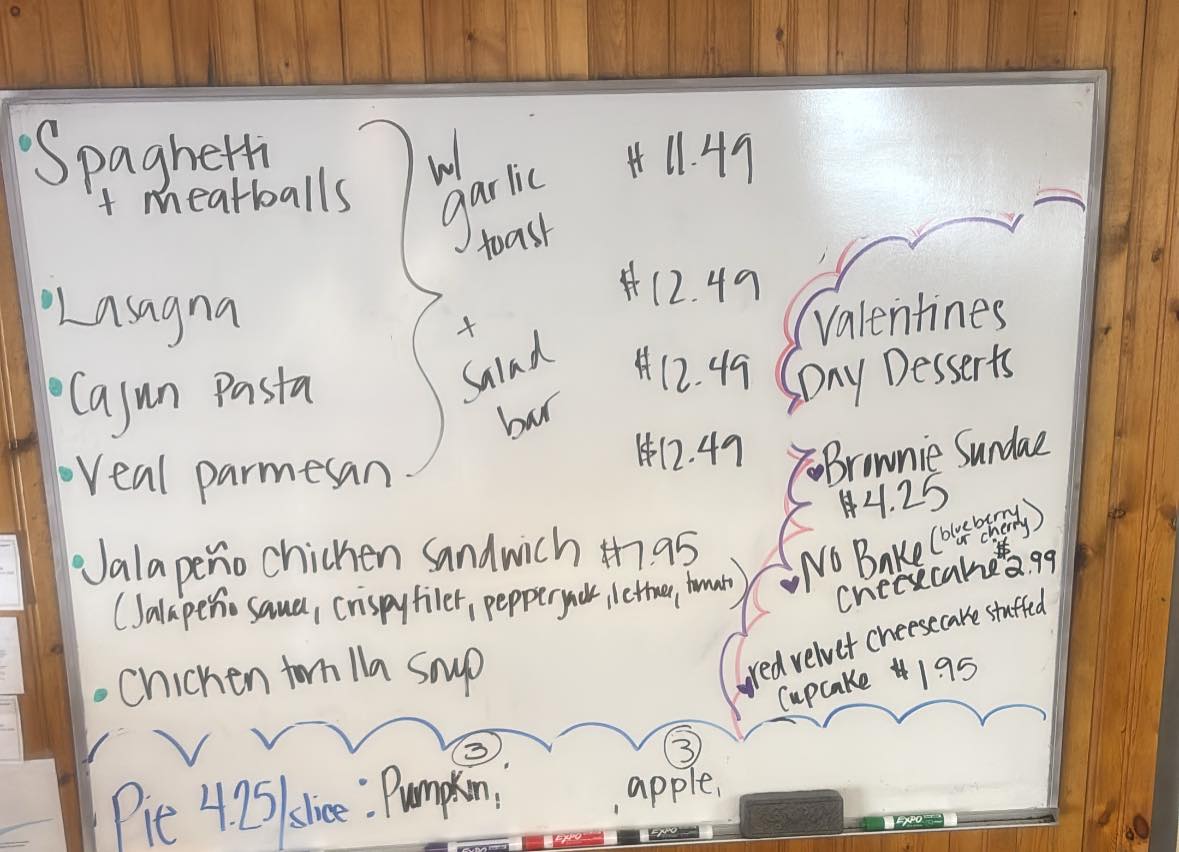 Spaghetti
+ meatballs
w/
garlic
toast
$ 11.49
Lasagna
$12.49
+
Salad
bar
Cajun Pasta
$12.49
Veal parmesan
$12.49
Jalapeño chicken sandwich $7.95
(Jalapeño sauce, crispy filet, pepperjack, lettuce, tomato)
Chicken tortilla soup
Valentines
Day Desserts
Brownie Sundae
$4.25
No Bake (blueberry
or cherry)
cheesecake $2.99
red velvet cheesecake stuffed
cupcake $1.95
③ ③
Pie 4.25/slice : Pumpkin, , apple,
EXPO EXPO EXPO EXPO